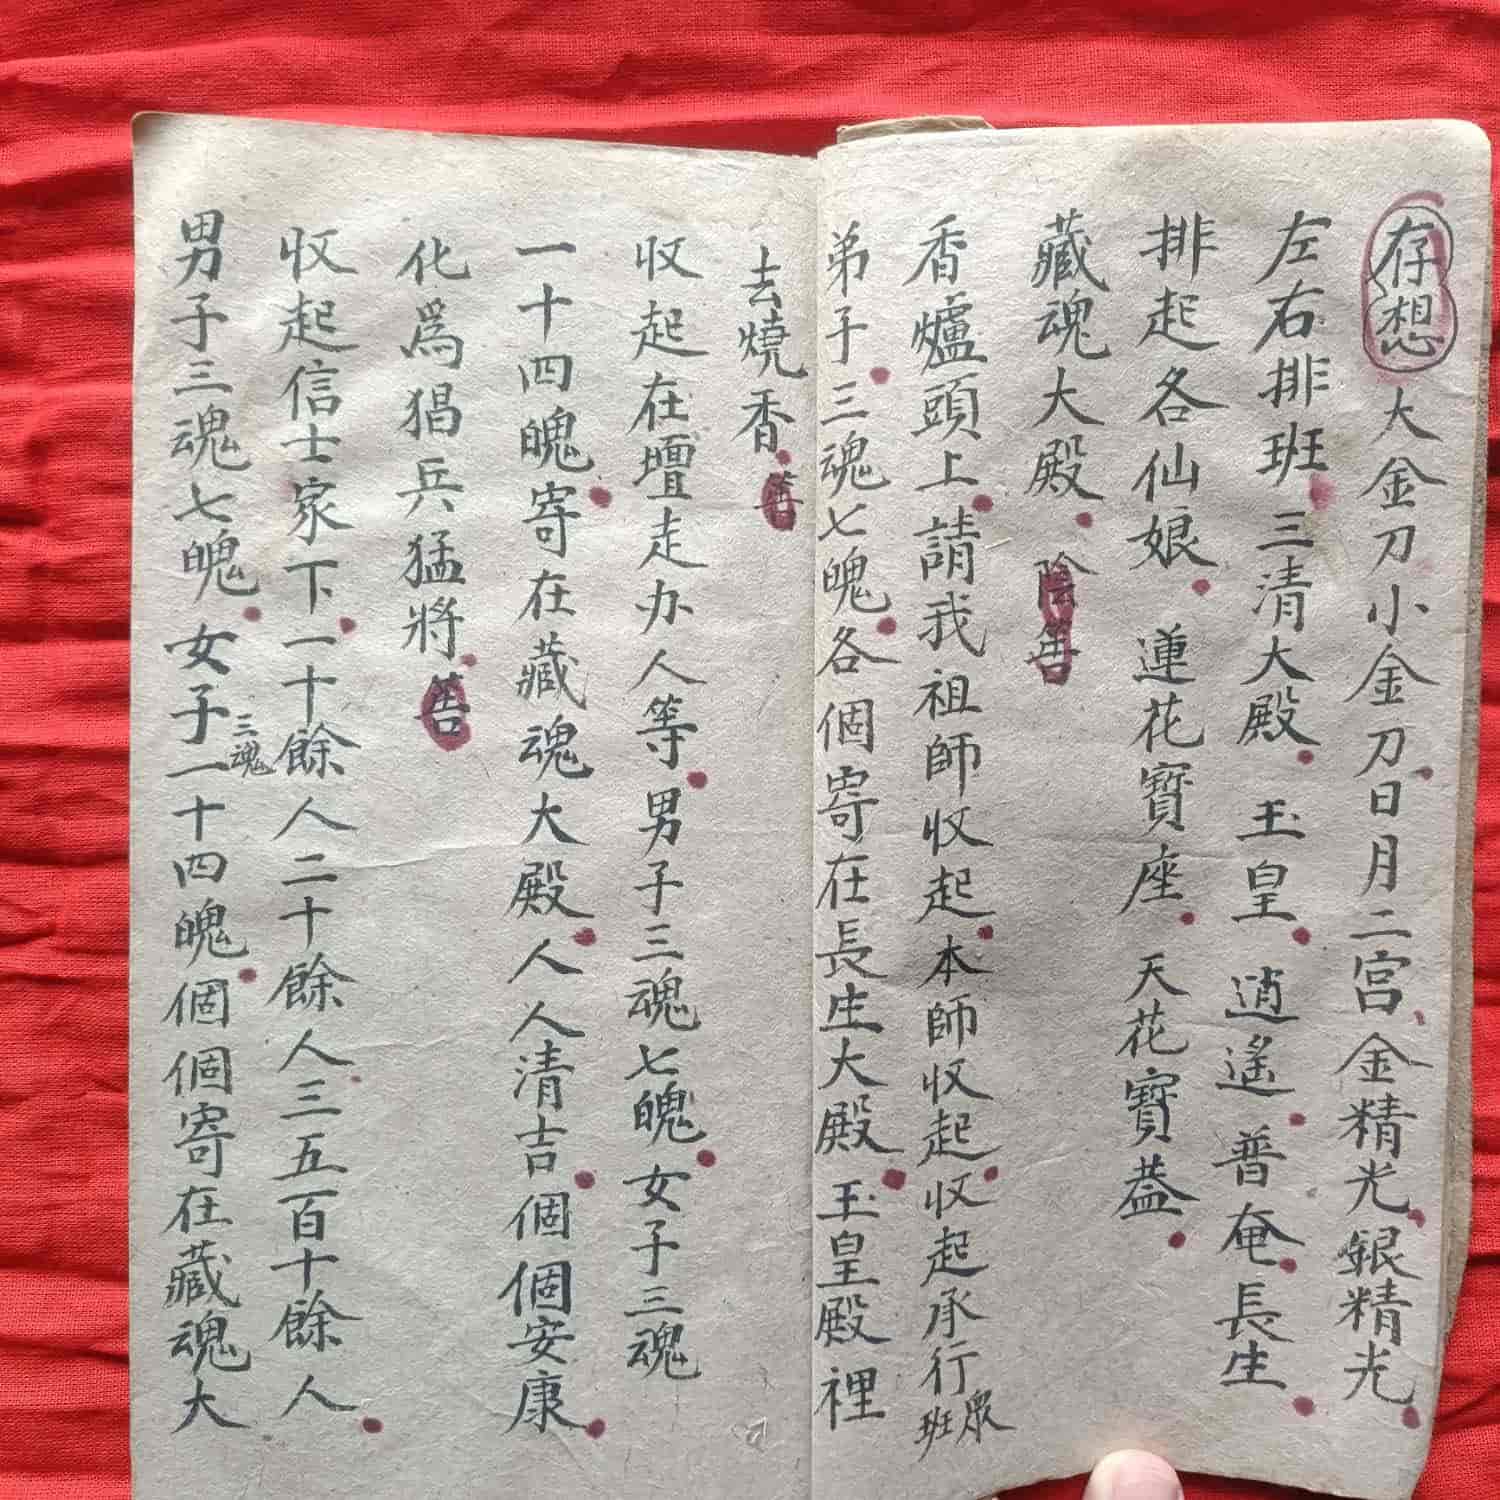 存想 大金刀小金刀日月二宫金精光銀精光
左右排班三清大殿玉皇逍遙普奄長生
排起各仙娘蓮花寶座天花寶蓋
藏魂大殿陰筶
香爐頭上請我祖師收起本師收起收起承行眾班
弟子三魂七魄各個寄在長生大殿玉皇殿裡
去燒香筶
收起在壇走办人等男子三魂七魄女子三魂
一十四魄寄在藏魂大殿人人清吉個個安康
化為猖兵猛將筶
收起信士家下一十餘人二十餘人三五百十餘人
男子三魂七魄女子三魂一十四魄個個寄在藏魂大